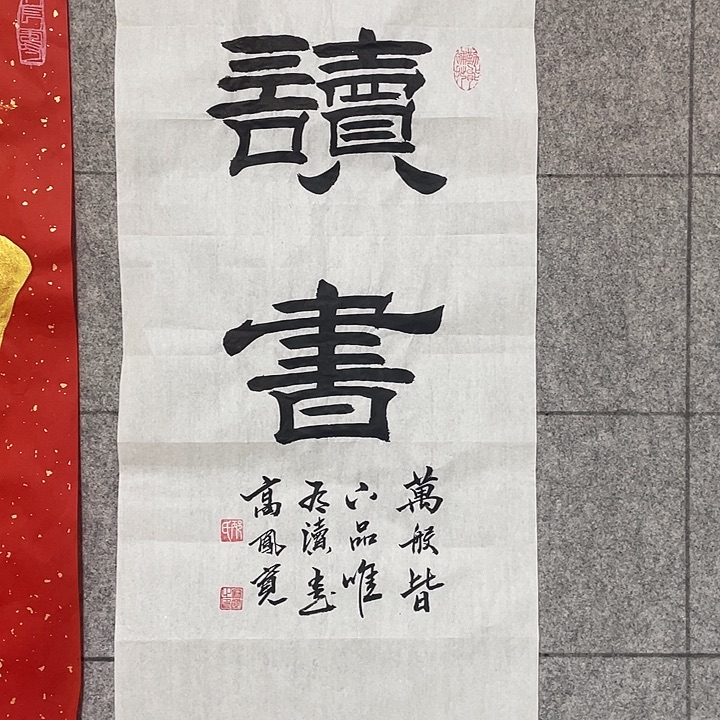 讀
書
萬般皆
下品唯
有讀書
高鳳